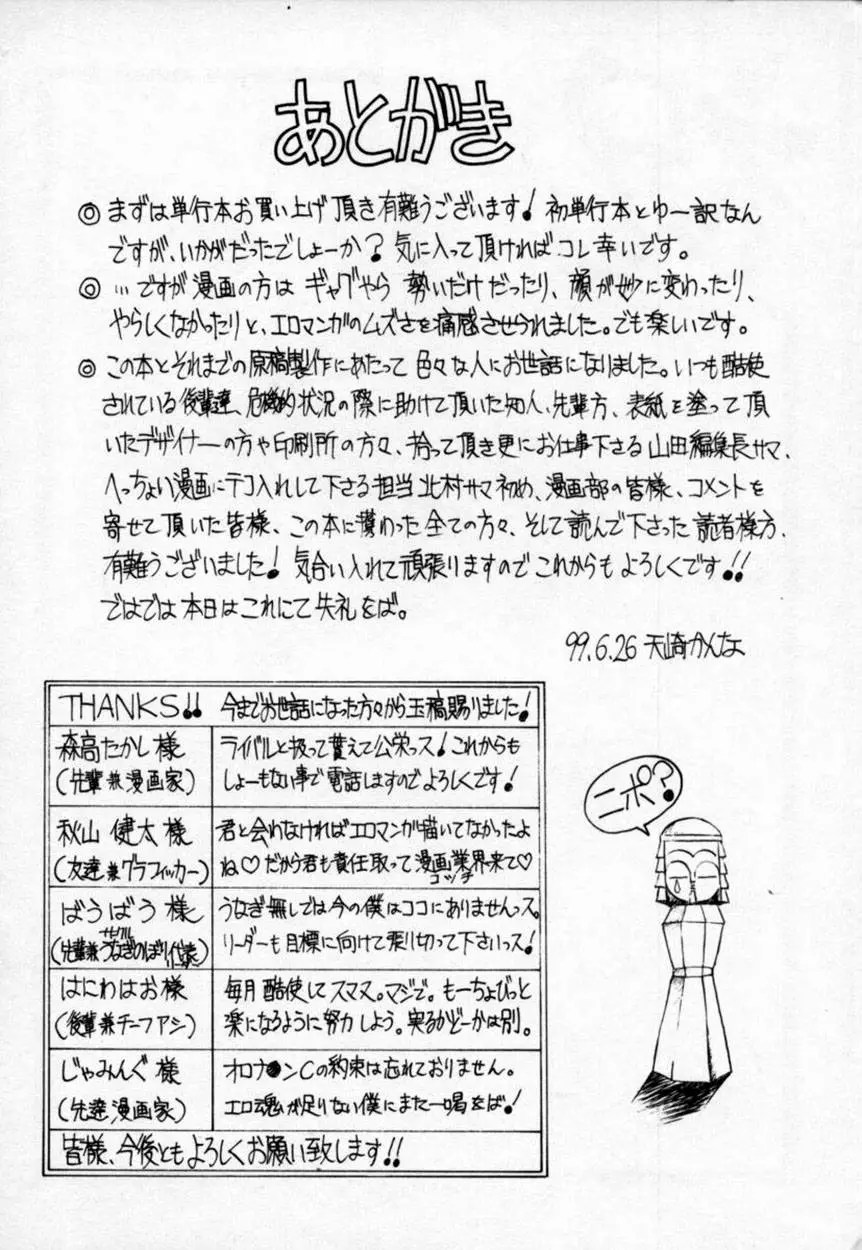 あとがき
◎ まずは単行本お買い上げ頂き有難うございます! 初単行本とゆー訳なん
ですが、いかがだったでしょーか? 気に入って頂ければコレ幸いです。
◎ …ですが漫画の方は ギャグやら 勢いだけだったり、顔が妙に変わったり、
やらしくなかったりと、エロマンガのムズさを痛感させられました。でも楽しいです。
◎ この本とそれまでの原稿製作にあたって 色々な人にお世話になりました。いつも酷使
されている後輩達、危機的状況の際に助けて頂いた知人、先輩方、表紙を塗って頂
いたデザイナーの方や印刷所の方々、拾って頂き更にお仕事下さる 山田編集長サマ、
へっちょい漫画にテコ入れして下さる担当 北村サマ初め、漫画部の皆様、コメントを
寄せて頂いた皆様、この本に携わった全ての方々、そして読んで下さった 読者様方、
有難うございました! 気合い入れて頑張りますので これからも よろしくです!!
ではでは本日はこれにて失礼をば。
99.6.26 天崎かんな
THANKS!! 今までお世話になった方々から玉稿賜りました!
森高たかし 様
(先輩兼漫画家)
ライバルと扱って貰えて公栄っス! これからも
しょーもない事で電話しますのでよろしくです!
秋山 健太 様
(友達兼グラフィッカー)
君と会わなければエロマンガ描いてなかったよ
ね♡だから君も責任取って漫画業界来て♡
コッチ
ばうばう 様
サークル
(先輩兼うなぎのぼり代表)
うなぎ無しでは今の僕はココにありませんっス。
リーダーも目標に向けて乗り切って下さいっス!
はにわはお様
(後輩兼チーフアシ)
毎月酷使してスマヌ。マジで。もーちょびっと
楽になるように努力しよう。実るかどーかは別。
じゃみんぐ 様
(先達漫画家)
オロナ●ンCの約束は忘れておりません。
エロ魂が足りない僕にまた一喝をば!
皆様、今後ともよろしくお願い致します!!
ニポ?